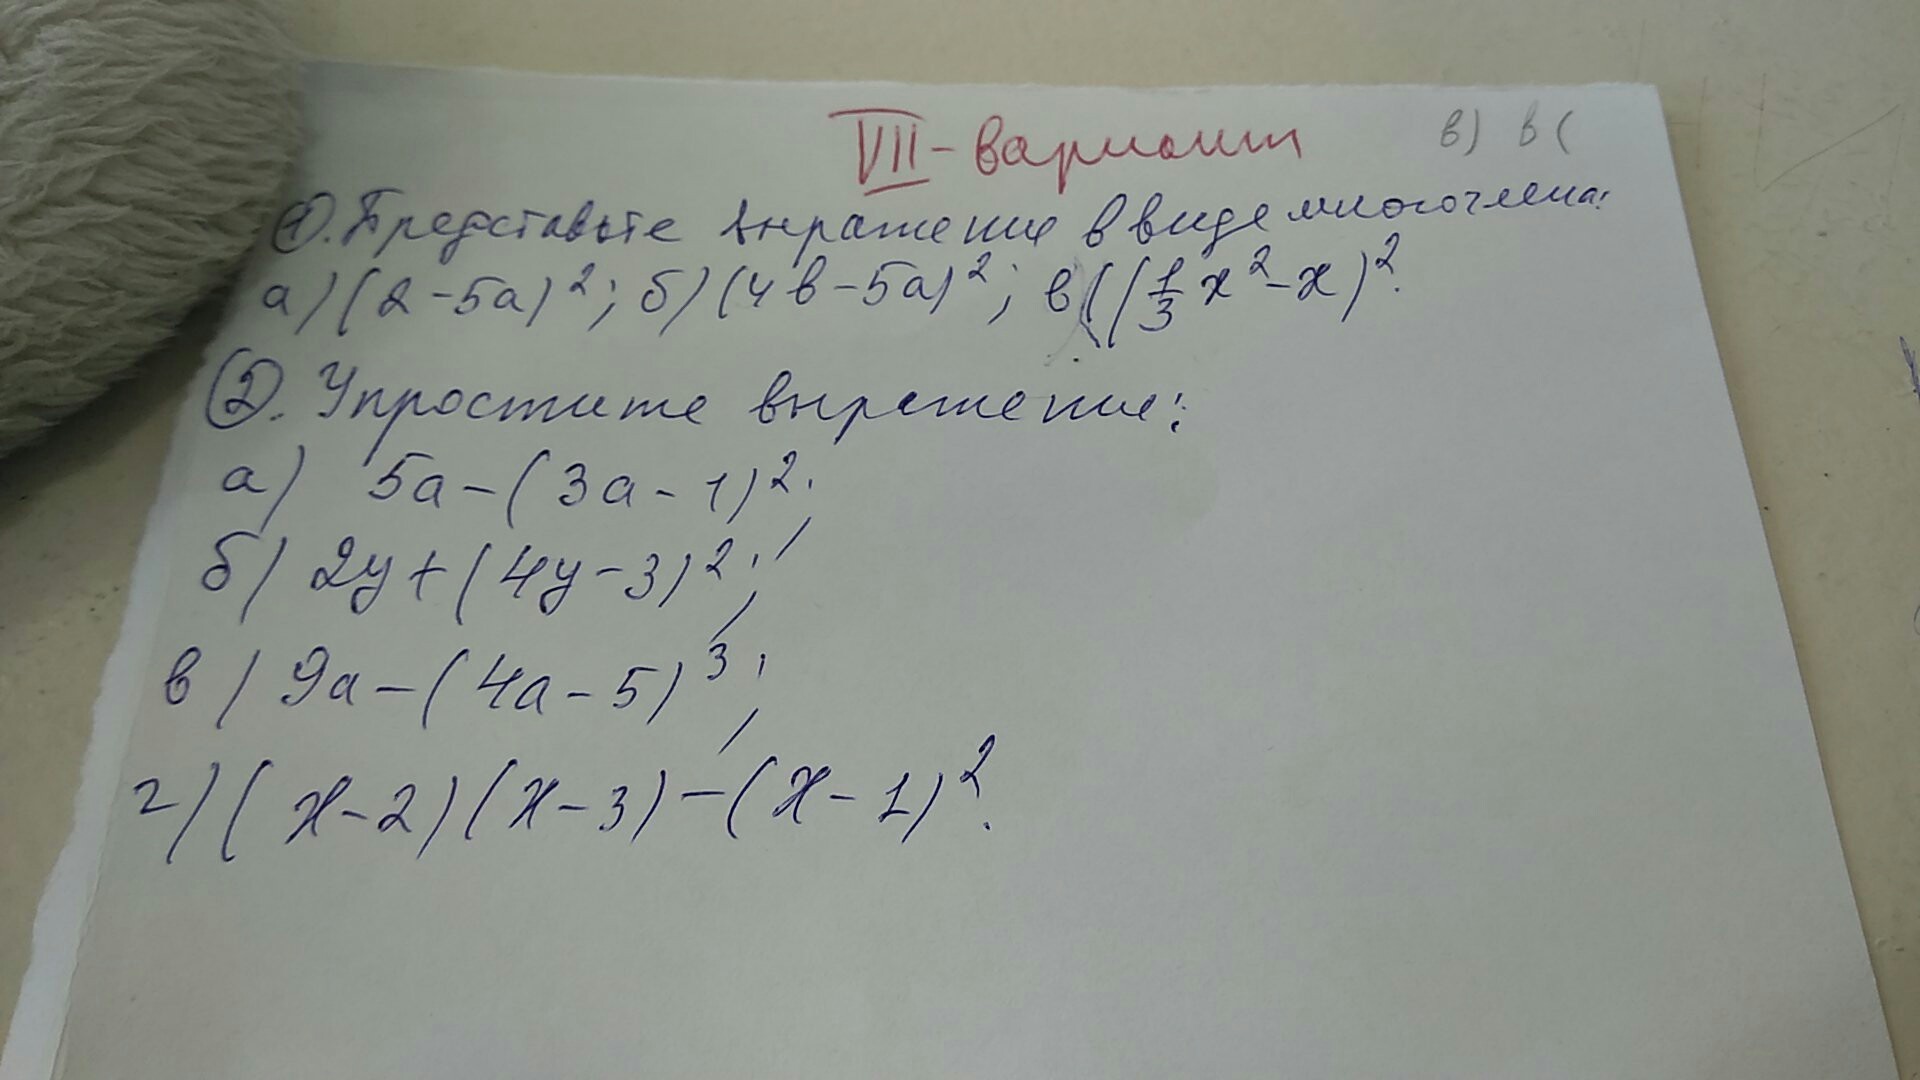 VII - вариант
в) в (
1. Представьте выражение в виде многочлена:
а) (2 - 5а)²; б) (4в - 5а)²; в( (1/3 х² - х)².
2. Упростите выражение:
а) 5а - (3а - 1)²;
б) 2у + (4у - 3)²;
в) 9а - (4а - 5)³;
г) (х - 2)(х - 3) - (х - 1)².